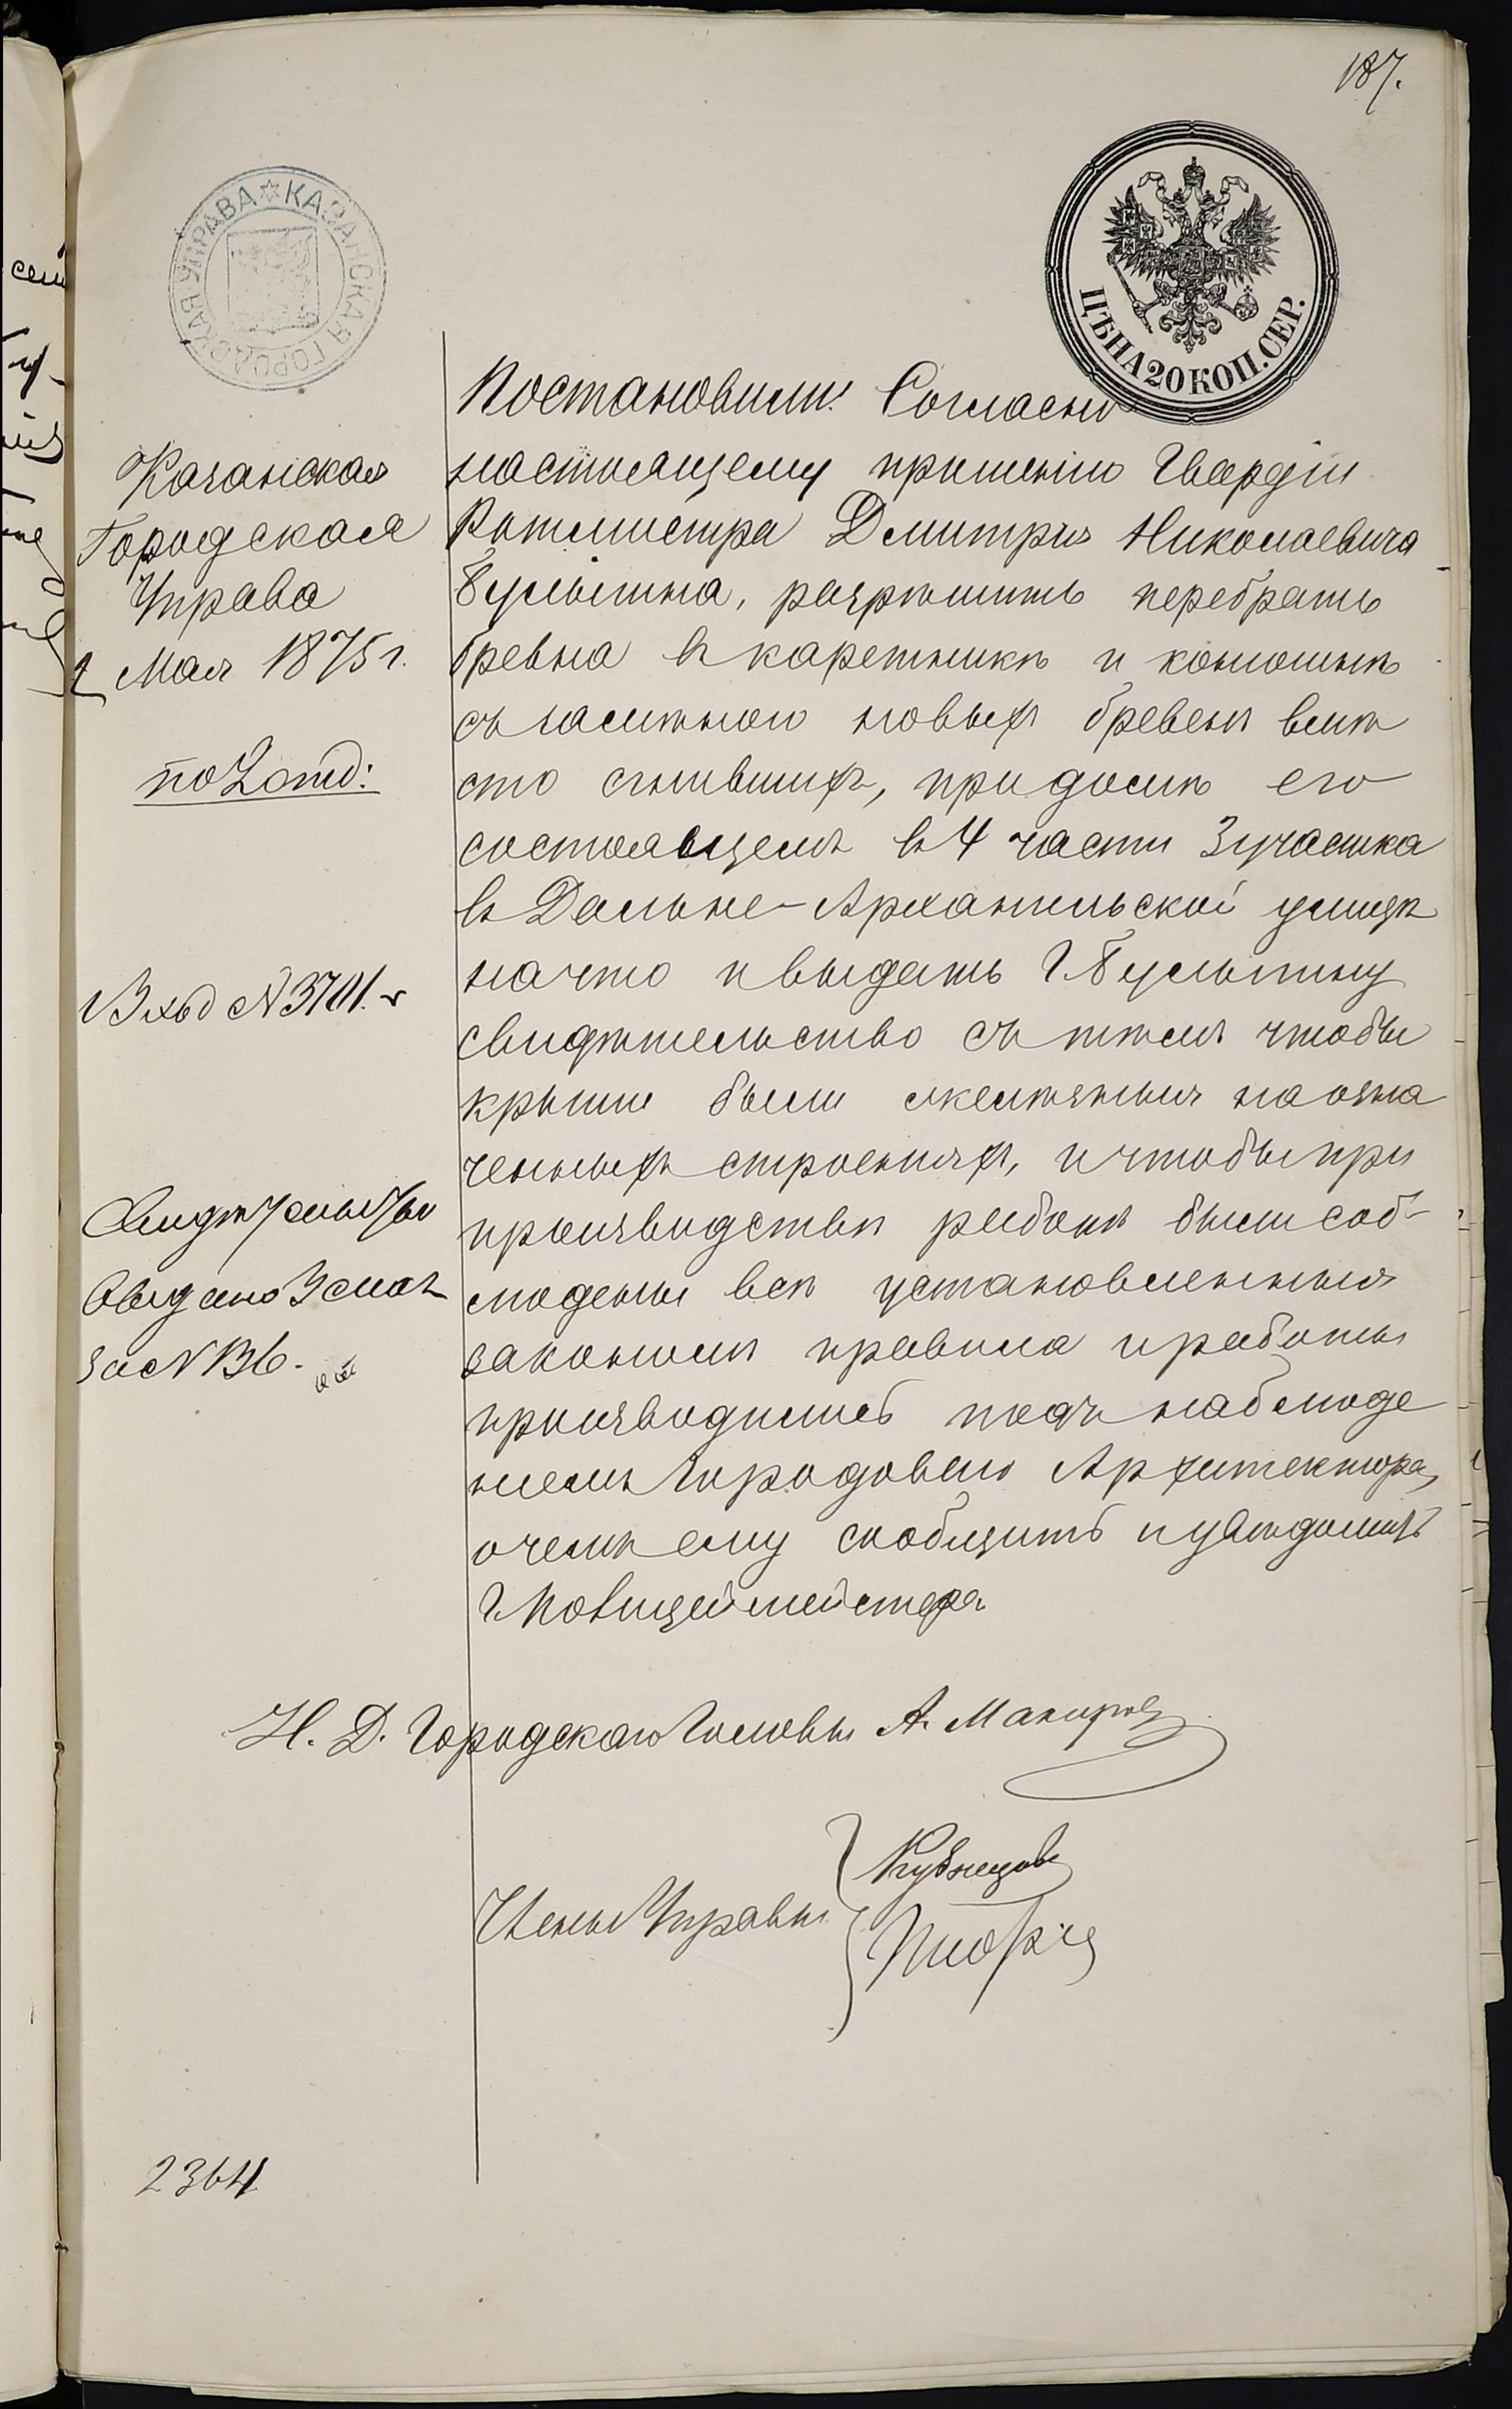 187.
КАЗАНСКАЯ ГОРОДСКАЯ УПРАВА
ЦѢНА 20 КОП. СЕР.
Казанская
Городская
Управа
2 Мая 1875 г.
по 2 отд:
Вход № 3701.
Свидѣтельство
выдано 3 мая
за № 136.
Постановили: Согласно
настоящему прошенію Гвардіи
Ротмистра Дмитрія Николаевича
Булыгина, разрѣшить перебрать
бревна въ каретникѣ и конюшнѣ
съ замѣною новыхъ бревенъ вмѣ
сто сгнившихъ, при домѣ его
состоявщемъ въ 4 части 3 участка
въ Дальне-Архангельской улицѣ
на что и выдать Г Булыгину
свидѣтельство съ тѣмъ чтобы
крыши были желѣзныя на озна
ченныхъ строеніяхъ, и чтобы при
производствѣ работъ были соб-
людены всѣ установленныя
закономъ правила и работы
производились подъ наблюде
ніемъ Городоваго Архитектора,
о чемъ ему сообщить и увѣдомить
Г Полицеймейстера
И. Д. Городскаго Головы А.
Члены Управы
Кузнецовъ
2364